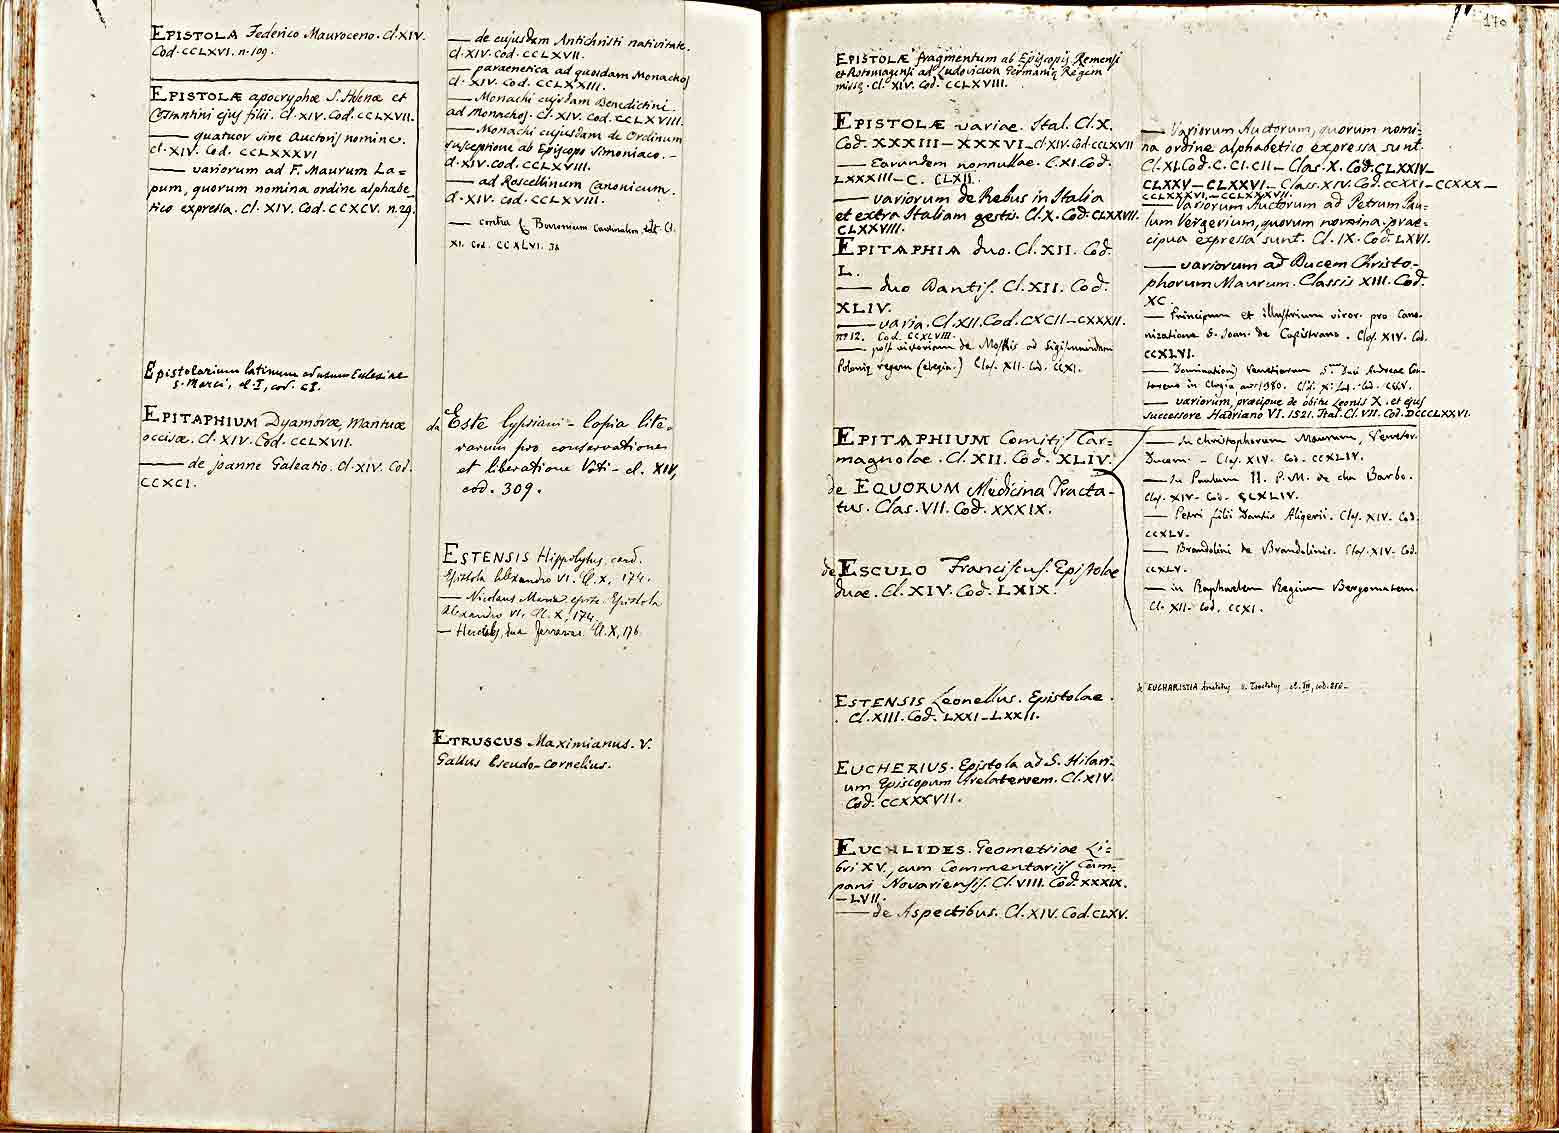 EPISTOLA Federico Mauroceno. Cl. XIV.
Cod. CCLXVI. n. 109.
EPISTOLÆ apocryphæ S. Helenæ et
Costantini ejus filii. Cl. XIV. Cod. CCLXVII.
— quatuor sine Auctoris nomine.
Cl. XIV. Cod. CCLXXXVI
— variorum ad F. Maurum La=
pum, quorum nomina ordine alphabe=
tico expressa. Cl. XIV. Cod. CCXCV. n. 29.
Epistolarium latinum ad usum Ecclesiae
S. Marci, cl. I, cod. CI.
EPITAPHIUM Dyambræ Mantuæ
occisæ. Cl. XIV. Cod. CCLXVII.
— de Joanne Galeatio. Cl. XIV. Cod.
CCXCI.
— de cujusdam Antichristi nativitate.
Cl. XIV. Cod. CCLXVII.
— paraenetica ad quosdam Monachos
Cl. XIV. Cod. CCLXXIII.
— Monachi cujusdam Benedictini
ad Monachos. Cl. XIV. Cod. CCLXVIII.
— Monachi cujusdam de Ordinum
susceptione ab Episcopo Simoniaco. —
Cl. XIV. Cod. CCLXVIII.
— ad Roscellinum Canonicum.
Cl. XIV. Cod. CCLXVIII.
— contra Baronium Cardinalem. Cl.
XI. Cod. CCXLVI.
da Este Copia lite=
rarum pro conservatione
et liberatione cl. XIV,
cod. 309.
ESTENSIS Hippolytus card.
Epistola Alexandro VI. Cl. X, 174.
— Nicolaus Maria Epistola
Alexandro VI. Cl. X, 174.
— Hercules, dux Ferrarae. Cl. X, 176.
ETRUSCUS Maximianus. V.
Gallus Pseudo-Cornelius.
170
EPISTOLÆ fragmentum ab Episcopis Remensi
et Rotomagensi ad Ludovicum Germaniæ Regem
missæ. Cl. XIV. Cod. CCLXVIII.
EPISTOLÆ variae. Ital. Cl. X.
Cod. XXXIII – XXXVI – Cl. XIV. Cod. CCLXVII
— Earundem nonnullae. C. XI. Cod.
LXXXIII – C. CLXII.
— variorum de Rebus in Italia
et extra Italiam gestis. Cl. X. Cod. CLXXVII.
CLXXVIII.
EPITAPHIA duo. Cl. XII. Cod.
L.
— duo Dantis. Cl. XII. Cod.
XLIV.
— varia. Cl. XII. Cod. CXCII – CXXXII.
nº 12. Cod. CCXLVIII.
— post victoriam de Moschis ad Sigismundum
Poloniæ regem (elegia.) Clas. XII. Cod. CCXI.
EPITAPHIUM Comitis Car=
magnolae. Cl. XII. Cod. XLIV.
de EQUORUM Medicina Tracta-
tus. Clas. VII. Cod. XXXIX.
de ESCULO Franciscus. Epistolae
duae. Cl. XIV. Cod. LXIX.
ESTENSIS Leonellus. Epistolae.
Cl. XIII. Cod. LXXI – LXXII.
EUCHERIUS. Epistola ad S. Hilari-
um Episcopum Arelatensem. Cl. XIV.
Cod. CCXXXVII.
EUCHLIDES. Geometriae Li=
bri XV, cum Commentariis Cam=
pani Novariensis. Cl. VIII. Cod. XXXIX.
– LVII.
— de Aspectibus. Cl. XIV. Cod. CLXV.
— Variorum Auctorum, quorum nomi=
na ordine alphabetico expressa sunt.
Cl. XI. Cod. C. CI. CII – Clas. X. Cod. CLXXIV –
CLXXV – CLXXVI – Class. XIV. Cod. CCXXI – CCXXX –
CCLXXXVI. – CCLXXXVII.
— Variorum Auctorum ad Petrum Pau=
lum Vergerium, quorum nomina præ=
cipua expressa sunt. Cl. IX. Cod. LXVI.
— variorum ad Ducem Christo-
phorum Maurum. Classis XIII. Cod.
XC.
— Principum et illustrium viror. pro Cano-
nizatione S. Joan. de Capistrano. Clas. XIV. Cod.
CCXLVI.
— Venetiarum Andreae Con-
tareno in Clugia ann. 1380.
— variorum, præcipue de obitu Leonis X. et ejus
successore Hadriano VI. 1521. Ital. Cl. VII. Cod. DCCCLXXVI.
— In Christophorum Maurum, Venetor.
Ducem – Clas. XIV. Cod. CCXLIV.
— In Paulum II. P. M. de cha Barbo.
Clas. XIV. Cod. CCXLIV.
— Petri filii Dantis Aligerii. Clas. XIV. Cod.
CCXLV.
— Brandolini de Brandolinis. Clas. XIV. Cod.
CCXLV.
— in Raphaelem Regium Bergomatem.
Cl. XII. Cod. CCXI.
de EUCHARISTIA